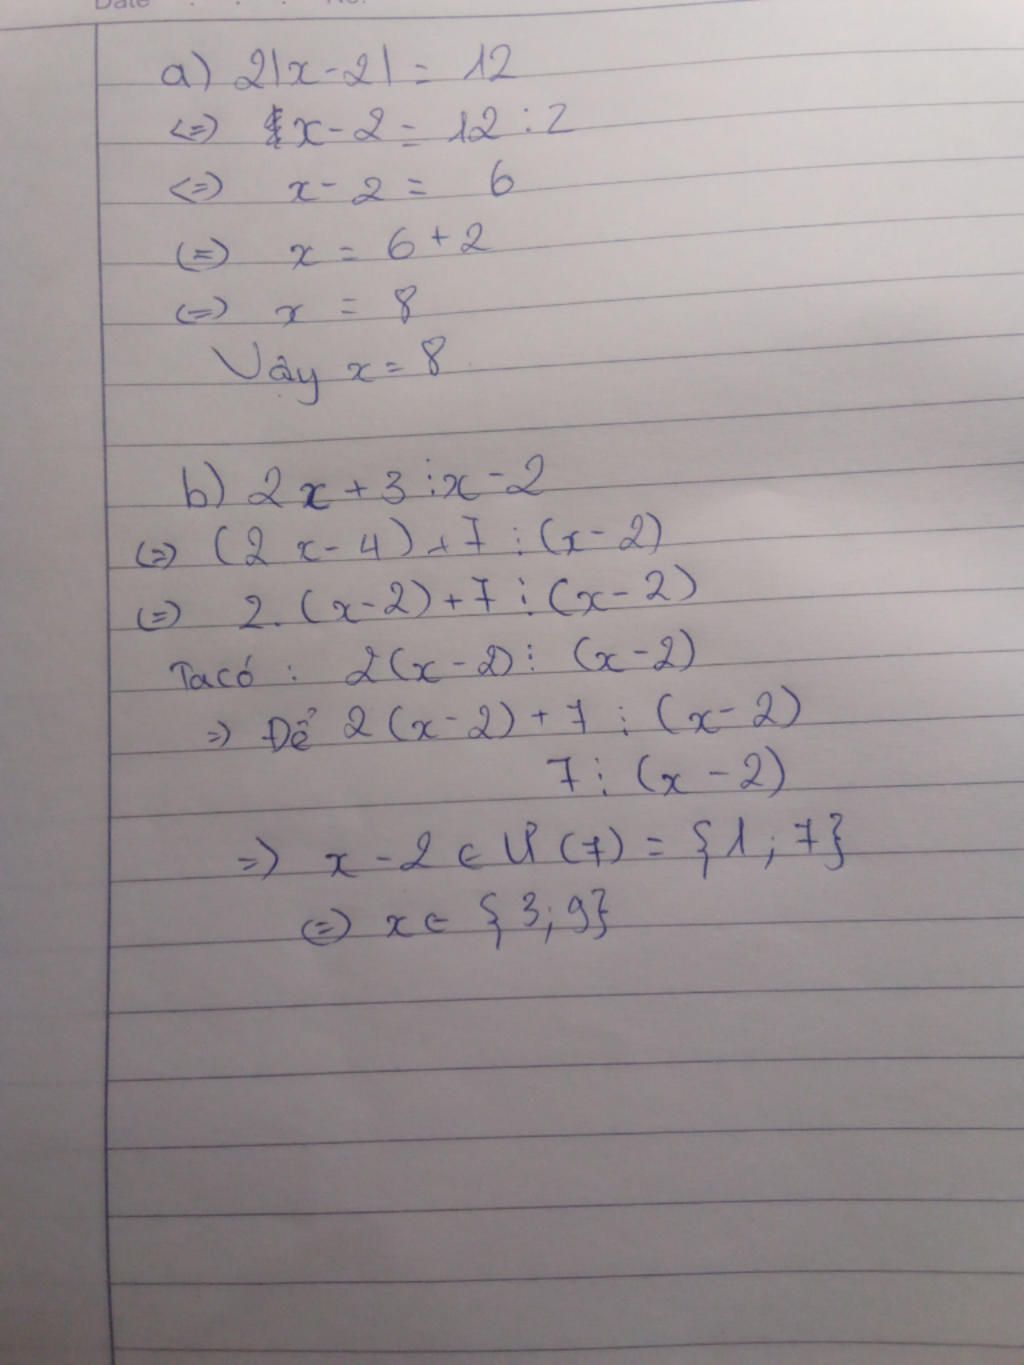 Date . . . No.
a) 2|x-2| = 12
<=> x-2 = 12:2
<=> x-2 = 6
<=> x = 6+2
<=> x = 8
Vậy x=8
b) 2x+3⋮x-2
<=> (2x-4)+7⋮(x-2)
<=> 2.(x-2)+7⋮(x-2)
Ta có: 2(x-2)⋮(x-2)
=> Để 2(x-2)+7⋮(x-2)
7⋮(x-2)
=> x-2 ∈ Ư(7) = {1; 7}
<=> x ∈ {3; 9}